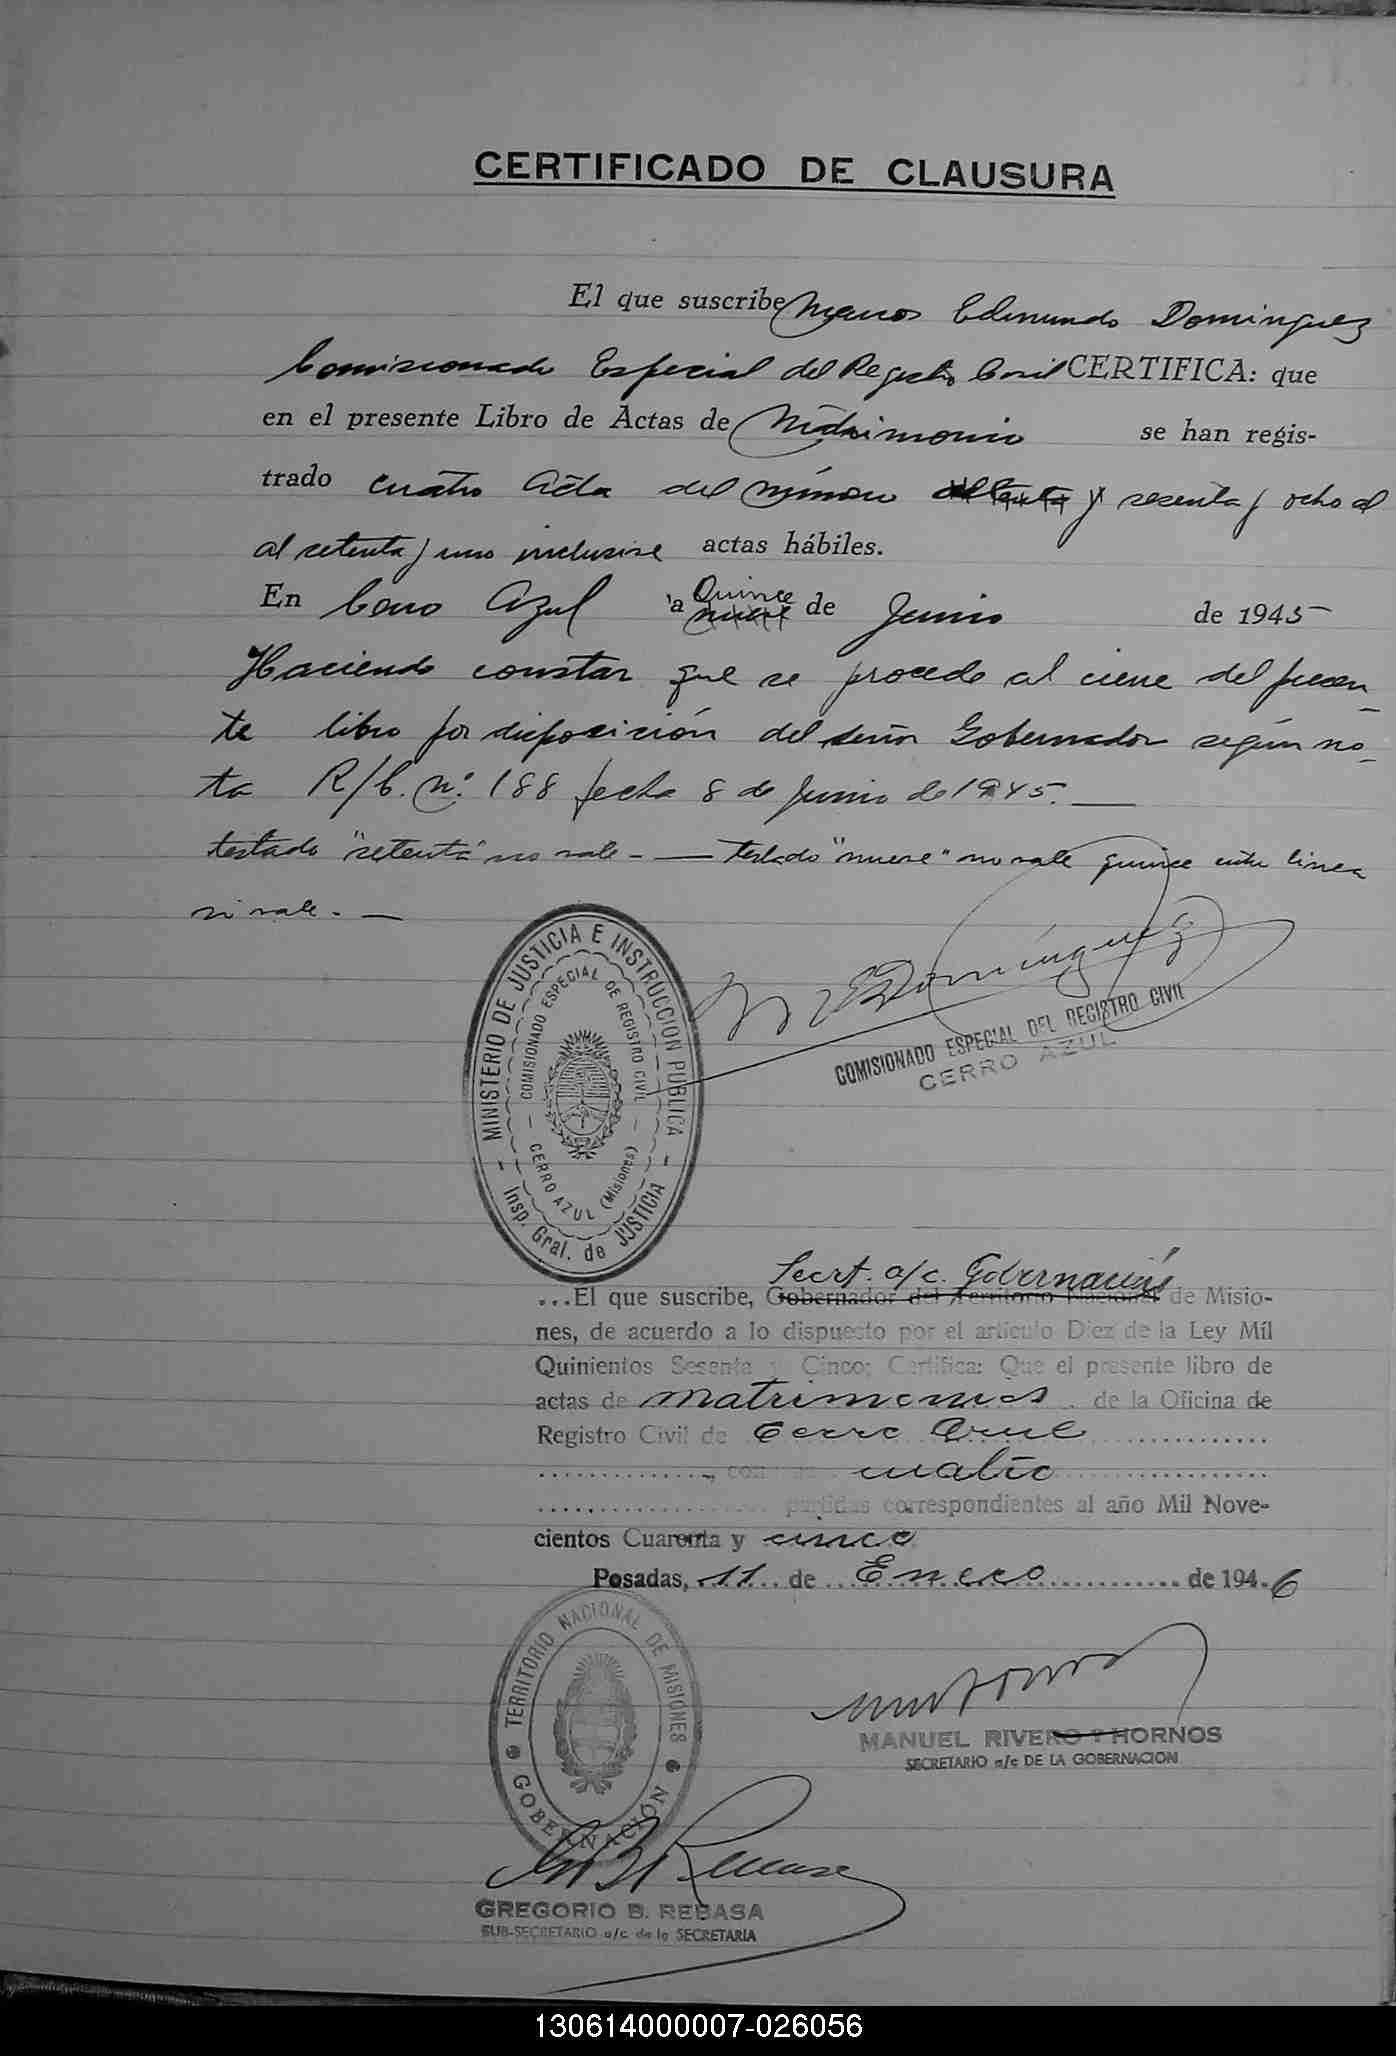 CERTIFICADO DE CLAUSURA
El que suscribe Marcos Edmundo Dominguez
Comisionado Especial del Registro Civil CERTIFICA: que
en el presente Libro de Actas de Matrimonio se han regis-
trado cuatro Acta del número setenta y sesenta y ocho al
al setenta y uno inclusive actas hábiles.
En Cerro Azul a Quince nueve de Junio de 1945
Haciendo constar que se procede al cierre del presen-
te libro por disposición del señor Gobernador según no-
ta R/C. Nº 188 fecha 8 de Junio de 1945.—
testado "setenta" no vale.— — testado "nueve" no vale quince entre linea
si vale.—
MINISTERIO DE JUSTICIA E INSTRUCCION PUBLICA
COMISIONADO ESPECIAL DE REGISTRO CIVIL
- CERRO AZUL (Misiones) -
- Insp. Gral. de JUSTICIA -
M E Domínguez
COMISIONADO ESPECIAL DEL REGISTRO CIVIL
CERRO AZUL
Secrt. a/c. Gobernación
...El que suscribe, Gobernador del Territorio Nacional de Misio-
nes, de acuerdo a lo dispuesto por el artículo Diez de la Ley Mil
Quinientos Sesenta y Cinco; Certifica: Que el presente libro de
actas de matrimonios de la Oficina de
Registro Civil de Cerro Azul
cuatro
partidas correspondientes al año Mil Nove-
cientos Cuarenta y cinco
Posadas, 11 de Enero de 1946
TERRITORIO NACIONAL DE MISIONES
GOBERNACIÓN
MANUEL RIVERO Y HORNOS
SECRETARIO a/c DE LA GOBERNACION
GREGORIO B. REBASA
SUB-SECRETARIO a/c de la SECRETARIA
130614000007-026056